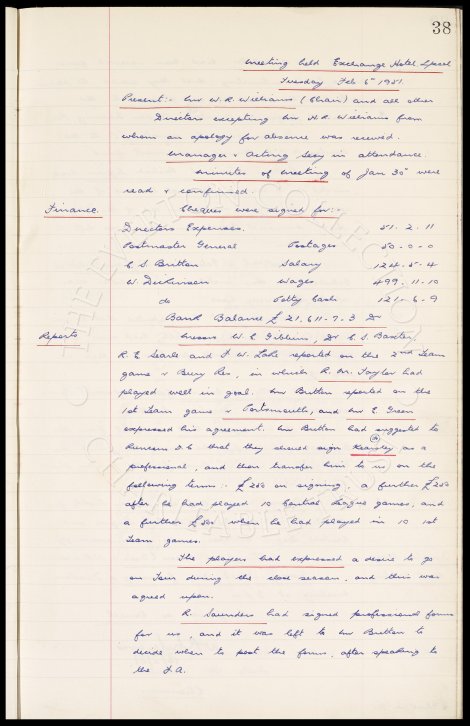 38
Meeting held Exchange Hotel Lpool
Tuesday Feb 6th 1951.
Present:- Mr W. R. Williams (Chair) and all other
Directors excepting Mr N. R. Williams from
whom an apology for absence was received.
Manager & Acting Secy in attendance.
Minutes of Meeting of Jan 30th were
read & confirmed.
Finance. Cheques were signed for:-
Directors Expenses. 51. 2. 11
Postmaster General Postages 50. 0. 0
C S. Britton Salary 124. 5. 4
W. Dickinson Wages 499. 11. 10
do Petty Cash 121. 6. 9
Bank Balance £ 21,611. 7. 3 Dr
Reports Messrs W. C. Gibbins, Dr C. S. Baxter,
R. E Searle and F. W. Lake reported on the 2nd Team
game v Bury Res, in which R. M. Taylor had
played well in goal. Mr Britton reported on the
1st Team game v Portsmouth, and Mr E. Green
expressed his agreement. Mr Britton had suggested to
Runcorn F.C that they should sign Kearsley as a
professional, and then transfer him to us, on the
following terms:- £250 on signing, a further £250
after he had played 10 Central League games, and
a further £500 when he had played in 10 1st
Team games.
The players had expressed a desire to go
on Tour during the close season, and this was
agreed upon.
R. Saunders had signed professional forms
for us, and it was left to Mr Britton to
decide when to post the forms, after speaking to
the F.A.